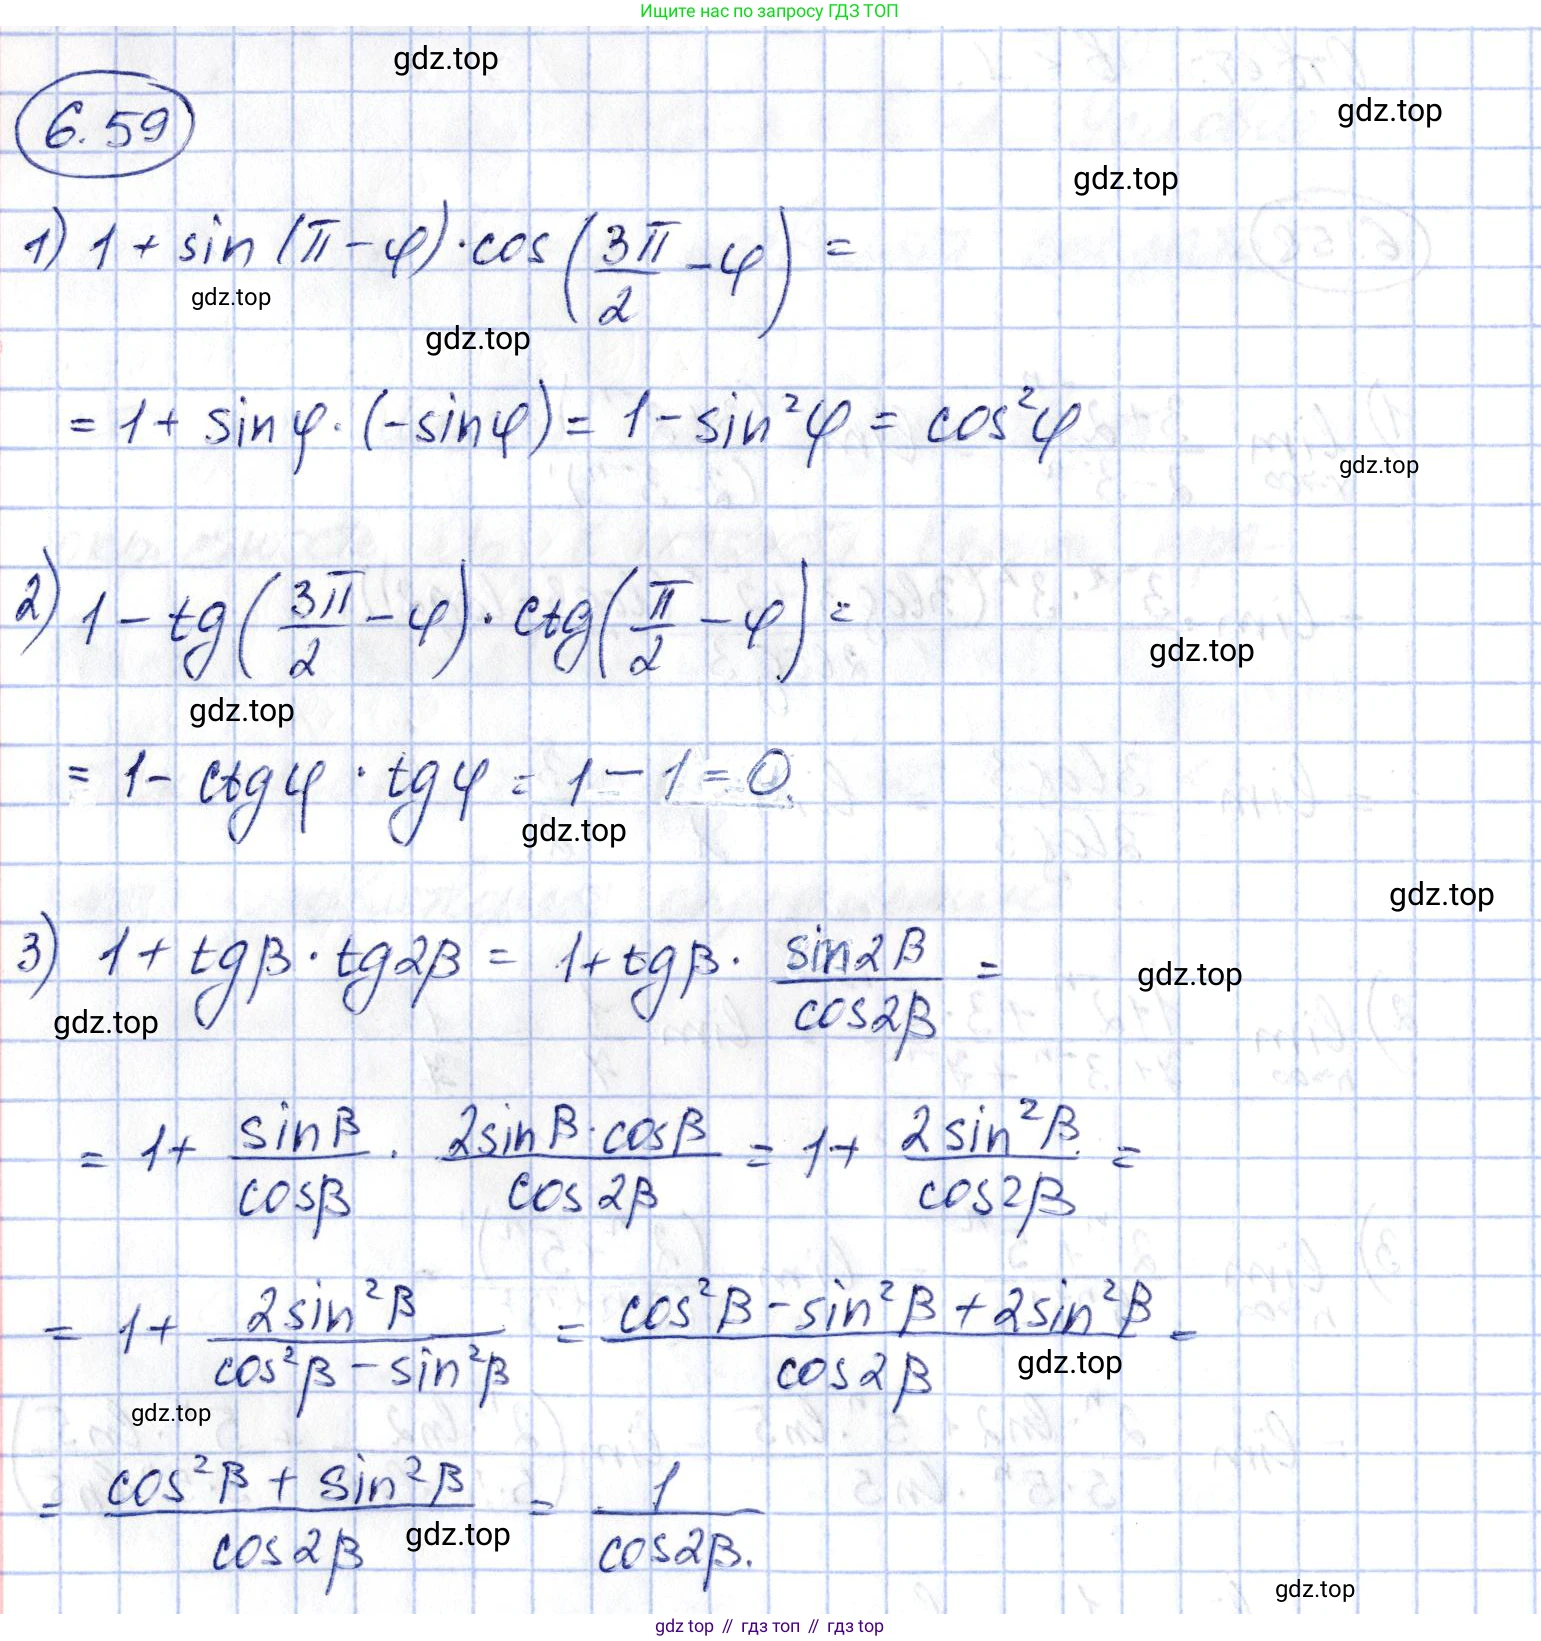 Ищите нас по запросу ГДЗ ТОП
gdz.top
6.59
gdz.top
gdz.top
1) 1 + sin (π − φ) · cos (3π/2 − φ) =
gdz.top
gdz.top
= 1 + sin φ · (−sin φ) = 1 − sin²φ = cos²φ
gdz.top
2) 1 − tg (3π/2 − φ) · ctg (π/2 − φ) =
gdz.top
gdz.top
= 1 − ctg φ · tg φ = 1 − 1 = 0.
gdz.top
gdz.top
3) 1 + tg β · tg 2β = 1 + tg β · sin 2β / cos 2β =
gdz.top
gdz.top
= 1 + sin β / cos β · 2 sin β · cos β / cos 2β = 1 + 2 sin²β / cos 2β =
= 1 + 2 sin²β / cos²β − sin²β = cos²β − sin²β + 2 sin²β / cos 2β =
gdz.top
gdz.top
= cos²β + sin²β / cos 2β = 1 / cos 2β.
gdz.top
gdz.top
gdz top // гдз топ // гдз top